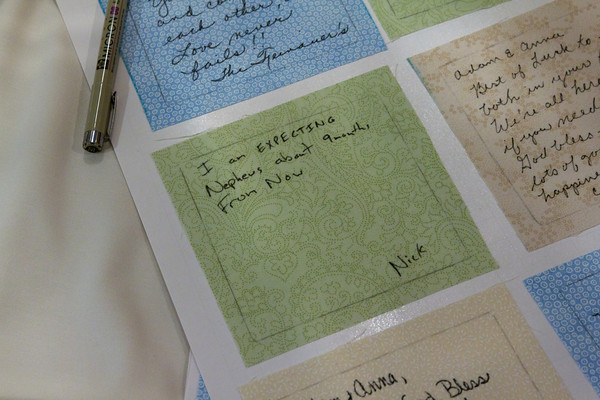 each other.
Love never
fails!!
The
I am EXPECTING
Nephews about 9 months,
From Now
Nick
Adam & Anna
Best of luck to
both in your
We're all here
if you need
God bless
lots of
happin
Anna,
God Bless